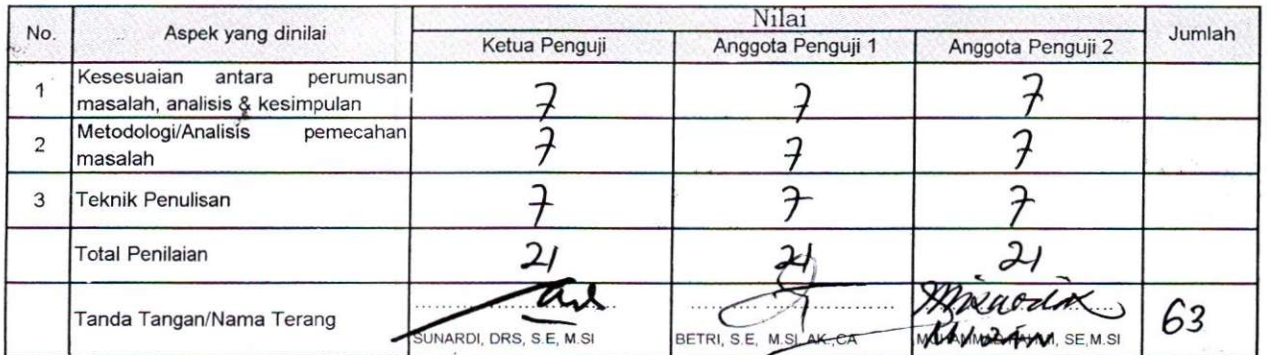 No. Aspek yang dinilai Nilai Jumlah
Ketua Penguji Anggota Penguji 1 Anggota Penguji 2
1 Kesesuaian antara perumusan
masalah, analisis & kesimpulan 7 7 7
2 Metodologi/Analisis pemecahan
masalah 7 7 7
3 Teknik Penulisan 7 7 7
Total Penilaian 21 21 21
Tanda Tangan/Nama Terang 63
SUNARDI, DRS, S.E, M.SI BETRI, S.E, M.SI, AK.,CA MUHAMMAD FAHMI, SE,M.SI